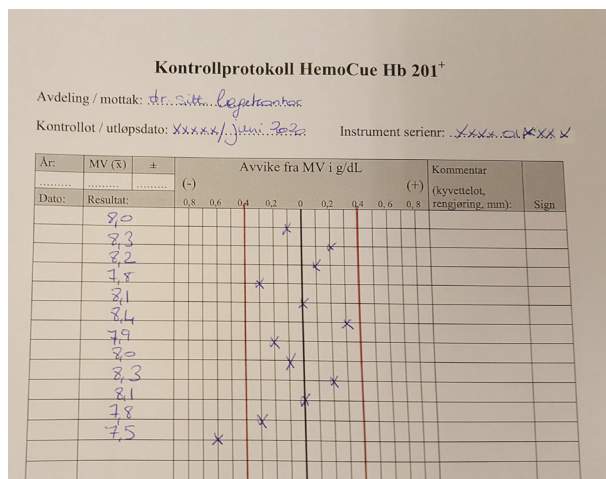 Kontrollprotokoll HemoCue Hb 201+
Avdeling / mottak: dr. sitt legekontor
Kontrollot / utløpsdato: xxxxx/juni 2020 Instrument serienr: xxxx 01xxx x
År: MV (x̄) ± Avvike fra MV i g/dL Kommentar
(-) (+) (kyvettelot,
Dato: Resultat: 0,8 0,6 0,4 0,2 0 0,2 0,4 0,6 0,8 rengjøring, mm): Sign
8,0
8,3
8,2
7,8
8,1
8,4
7,9
8,0
8,3
8,1
7,8
7,5